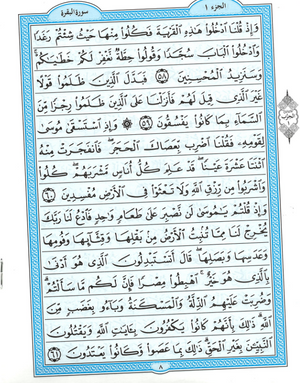 الجزء ١
سورة البقرة
وَإِذْ قُلْنَا ادْخُلُوا هَذِهِ الْقَرْيَةَ فَكُلُوا مِنْهَا حَيْثُ شِئْتُمْ رَغَدًا
وَادْخُلُوا الْبَابَ سُجَّدًا وَقُولُوا حِطَّةٌ نَغْفِرْ لَكُمْ خَطَايَاكُمْ
وَسَنَزِيدُ الْمُحْسِنِينَ ٥٨ فَبَدَّلَ الَّذِينَ ظَلَمُوا قَوْلًا
غَيْرَ الَّذِي قِيلَ لَهُمْ فَأَنْزَلْنَا عَلَى الَّذِينَ ظَلَمُوا رِجْزًا مِنَ
السَّمَاءِ بِمَا كَانُوا يَفْسُقُونَ ٥٩ وَإِذِ اسْتَسْقَى مُوسَى
لِقَوْمِهِ فَقُلْنَا اضْرِبْ بِعَصَاكَ الْحَجَرَ فَانْفَجَرَتْ مِنْهُ
اثْنَتَا عَشْرَةَ عَيْنًا قَدْ عَلِمَ كُلُّ أُنَاسٍ مَشْرَبَهُمْ كُلُوا
وَاشْرَبُوا مِنْ رِزْقِ اللَّهِ وَلَا تَعْثَوْا فِي الْأَرْضِ مُفْسِدِينَ ٦٠
وَإِذْ قُلْتُمْ يَامُوسَى لَنْ نَصْبِرَ عَلَى طَعَامٍ وَاحِدٍ فَادْعُ لَنَا رَبَّكَ
يُخْرِجْ لَنَا مِمَّا تُنْبِتُ الْأَرْضُ مِنْ بَقْلِهَا وَقِثَّائِهَا وَفُومِهَا
وَعَدَسِهَا وَبَصَلِهَا قَالَ أَتَسْتَبْدِلُونَ الَّذِي هُوَ أَدْنَى
بِالَّذِي هُوَ خَيْرٌ اهْبِطُوا مِصْرًا فَإِنَّ لَكُمْ مَا سَأَلْتُمْ
وَضُرِبَتْ عَلَيْهِمُ الذِّلَّةُ وَالْمَسْكَنَةُ وَبَاءُوا بِغَضَبٍ مِنَ
اللَّهِ ذَلِكَ بِأَنَّهُمْ كَانُوا يَكْفُرُونَ بِآيَاتِ اللَّهِ وَيَقْتُلُونَ
النَّبِيِّينَ بِغَيْرِ الْحَقِّ ذَلِكَ بِمَا عَصَوْا وَكَانُوا يَعْتَدُونَ ٦١
٨